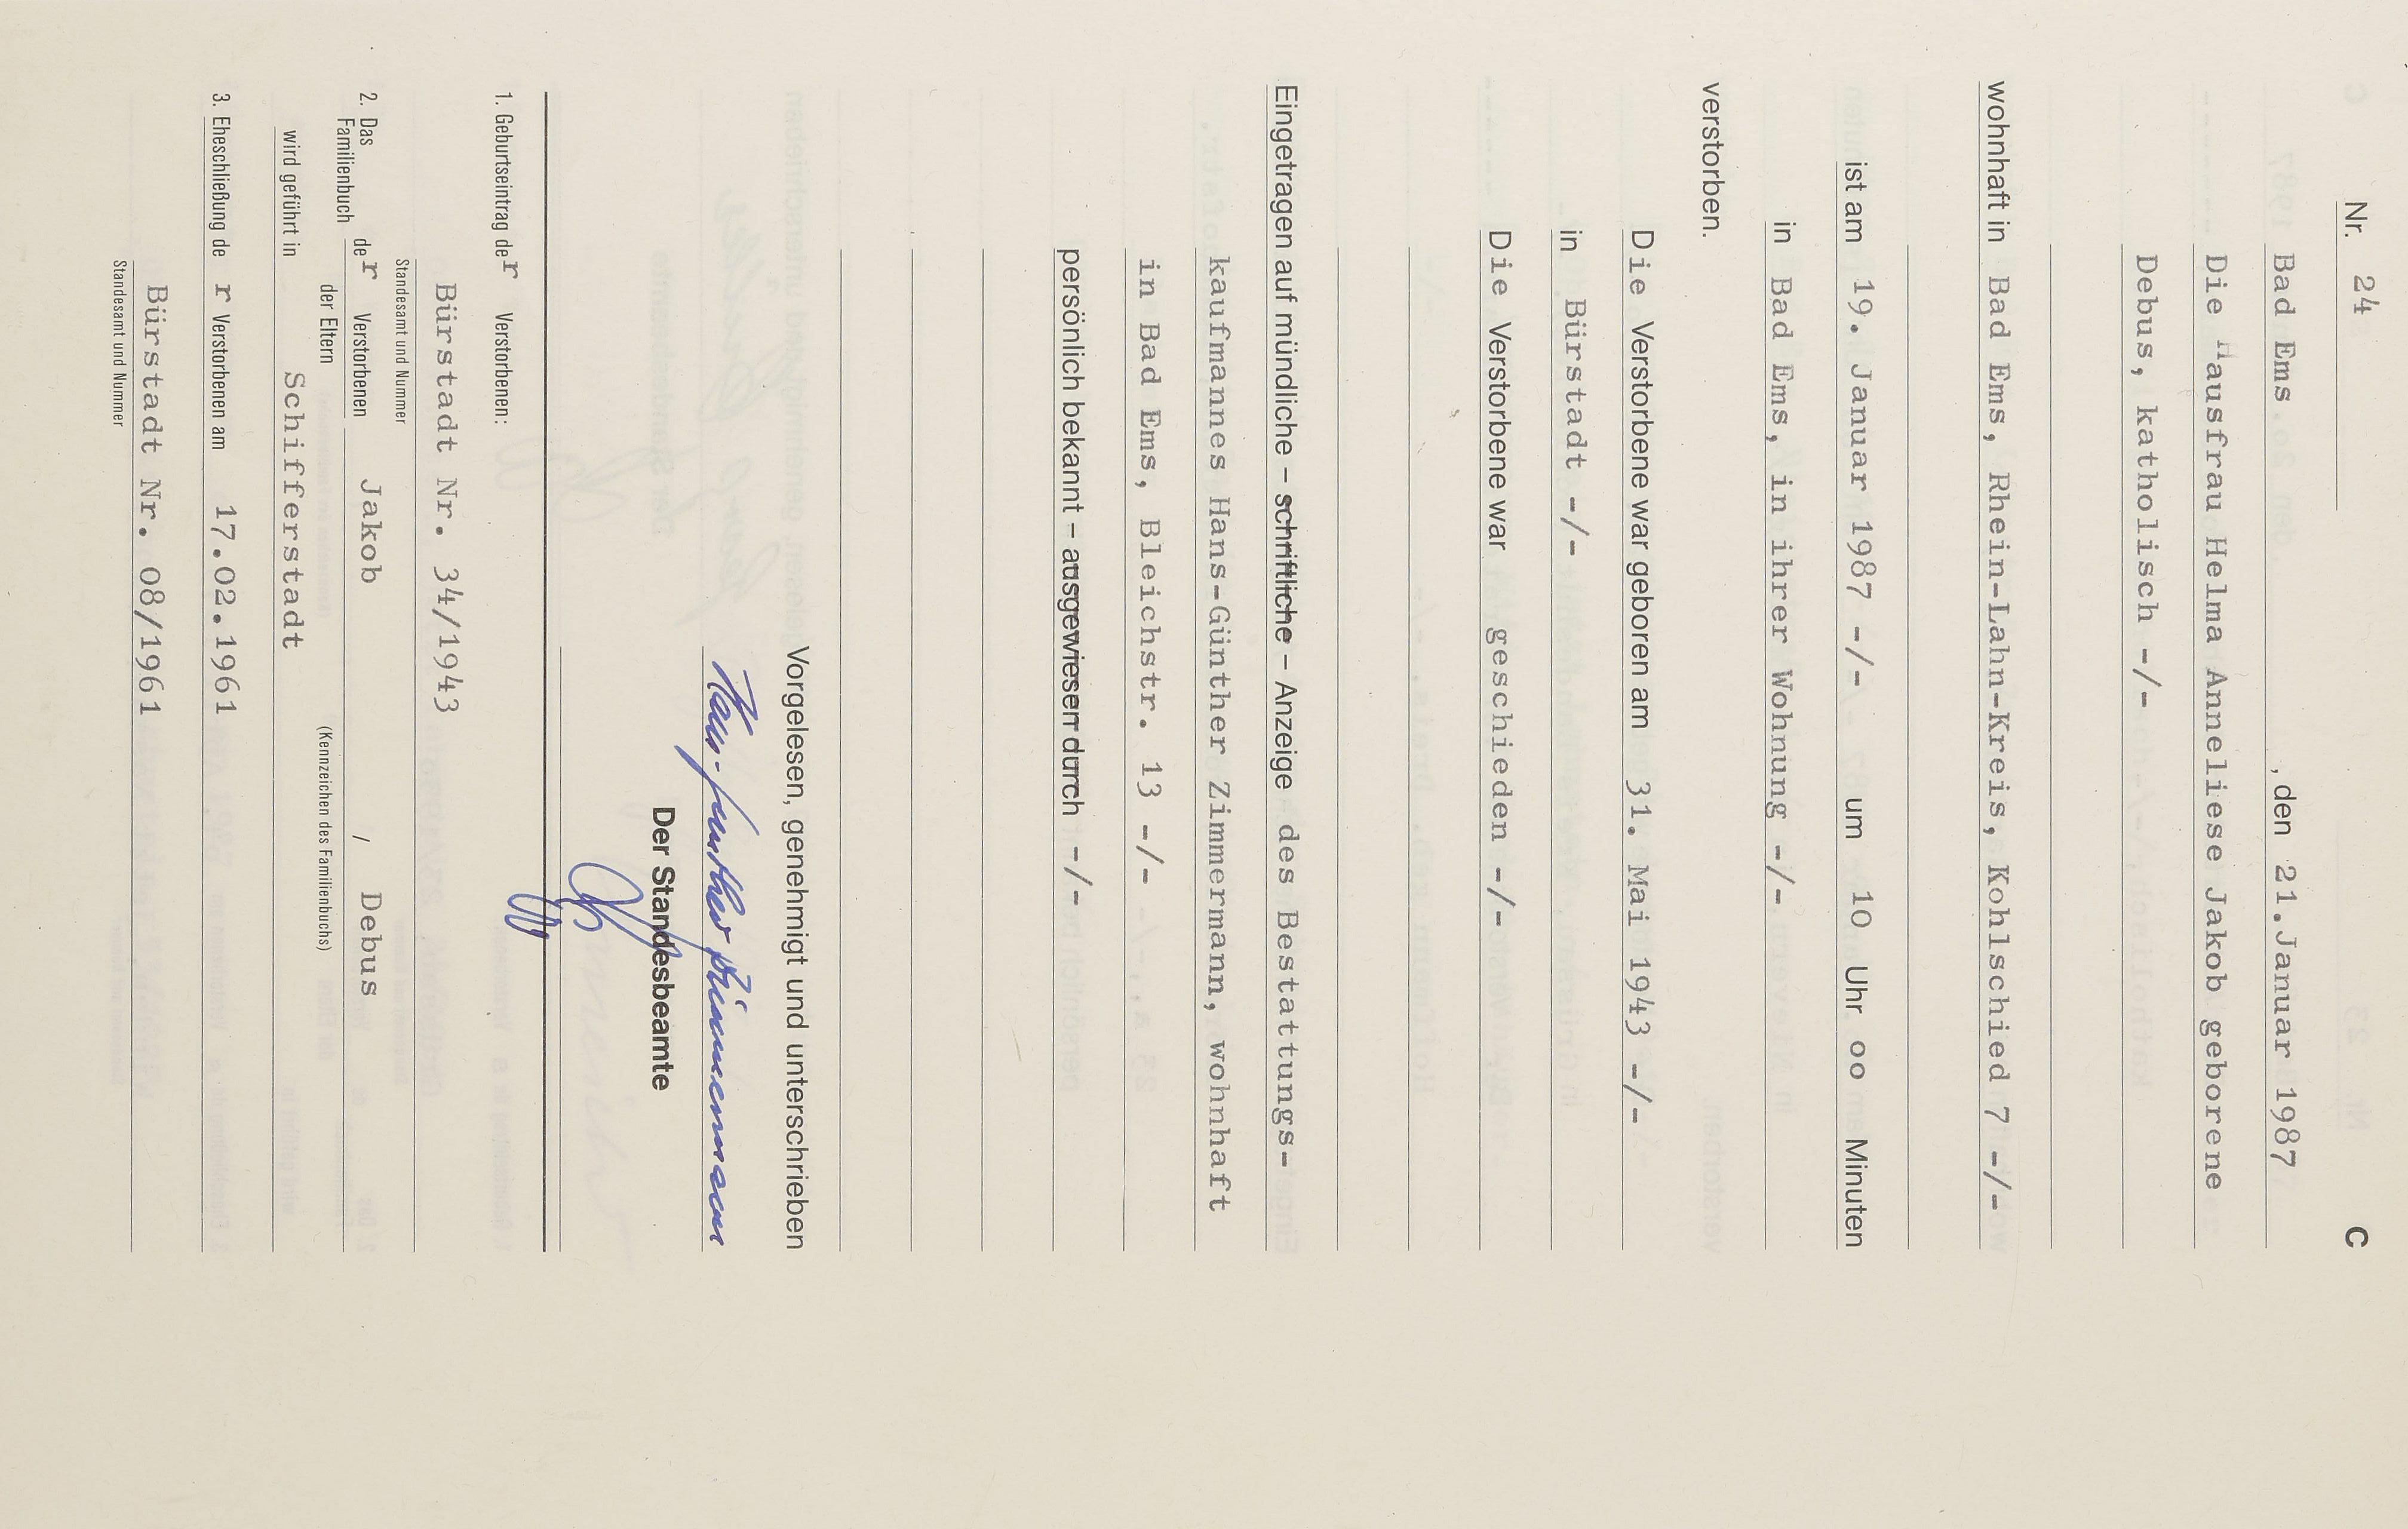 Nr. 24 C
Bad Ems , den 21.Januar 1987
Die Hausfrau Helma Anneliese Jakob geborene
Debus, katholisch -/-
wohnhaft in Bad Ems, Rhein-Lahn-Kreis, Kohlschied 7 -/-
ist am 19. Januar 1987 -/- um 10 Uhr oo Minuten
in Bad Ems, in ihrer Wohnung -/-
verstorben.
Die Verstorbene war geboren am 31. Mai 1943 -/-
in Bürstadt -/-
Die Verstorbene war geschieden -/-
Eingetragen auf mündliche – schriftliche – Anzeige des Bestattungs-
kaufmannes Hans-Günther Zimmermann, wohnhaft
in Bad Ems, Bleichstr. 13 -/-
persönlich bekannt – ausgewiesen durch -/-
Vorgelesen, genehmigt und unterschrieben
Hans-Günther Zimmermann
Der Standesbeamte
1. Geburtseintrag der Verstorbenen:
Bürstadt Nr. 34/1943
Standesamt und Nummer
2. Das Familienbuch der Verstorbenen Jakob / Debus
der Eltern (Kennzeichen des Familienbuchs)
wird geführt in Schifferstadt
3. Eheschließung de r Verstorbenen am 17.02.1961
Bürstadt Nr. 08/1961
Standesamt und Nummer